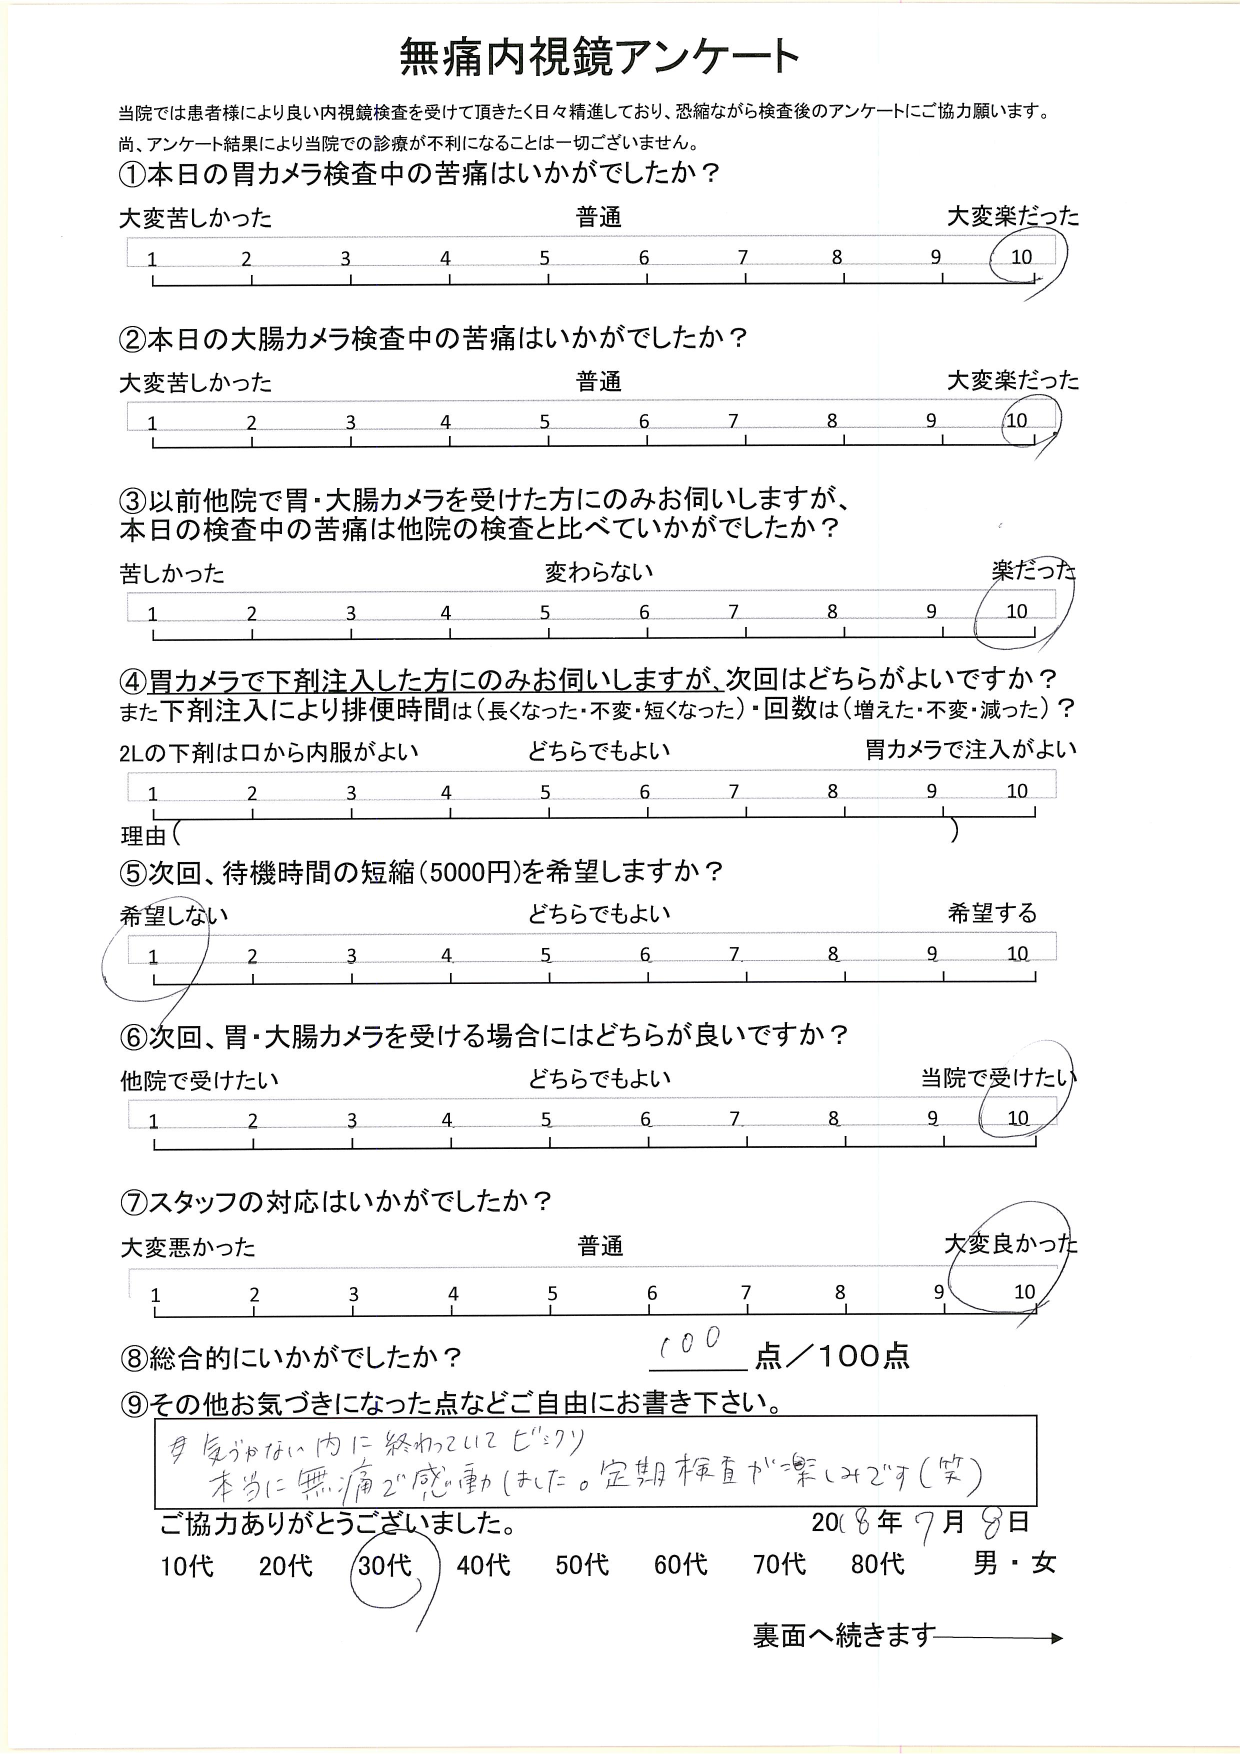 無痛内視鏡アンケート
当院では患者様により良い内視鏡検査を受けて頂きたく日々精進しており、恐縮ながら検査後のアンケートにご協力願います。
尚、アンケート結果により当院での診療が不利になることは一切ございません。
①本日の胃カメラ検査中の苦痛はいかがでしたか？
大変苦しかった 普通 大変楽だった
1 2 3 4 5 6 7 8 9 10
②本日の大腸カメラ検査中の苦痛はいかがでしたか？
大変苦しかった 普通 大変楽だった
1 2 3 4 5 6 7 8 9 10
③以前他院で胃・大腸カメラを受けた方にのみお伺いしますが、
本日の検査中の苦痛は他院の検査と比べていかがでしたか？
苦しかった 変わらない 楽だった
1 2 3 4 5 6 7 8 9 10
④胃カメラで下剤注入した方にのみお伺いしますが、次回はどちらがよいですか？
また下剤注入により排便時間は（長くなった・不変・短くなった）・回数は（増えた・不変・減った）？
2Lの下剤は口から内服がよい どちらでもよい 胃カメラで注入がよい
1 2 3 4 5 6 7 8 9 10
理由（ ）
⑤次回、待機時間の短縮（5000円）を希望しますか？
希望しない どちらでもよい 希望する
1 2 3 4 5 6 7 8 9 10
⑥次回、胃・大腸カメラを受ける場合にはどちらが良いですか？
他院で受けたい どちらでもよい 当院で受けたい
1 2 3 4 5 6 7 8 9 10
⑦スタッフの対応はいかがでしたか？
大変悪かった 普通 大変良かった
1 2 3 4 5 6 7 8 9 10
⑧総合的にいかがでしたか？ 100 点／100点
⑨その他お気づきになった点などご自由にお書き下さい。
気づかない内に終わっていてビックリ
本当に無痛で感動しました。定期検査が楽しみです(笑)
ご協力ありがとうございました。 2018年7月8日
10代 20代 30代 40代 50代 60代 70代 80代 男・女
裏面へ続きます